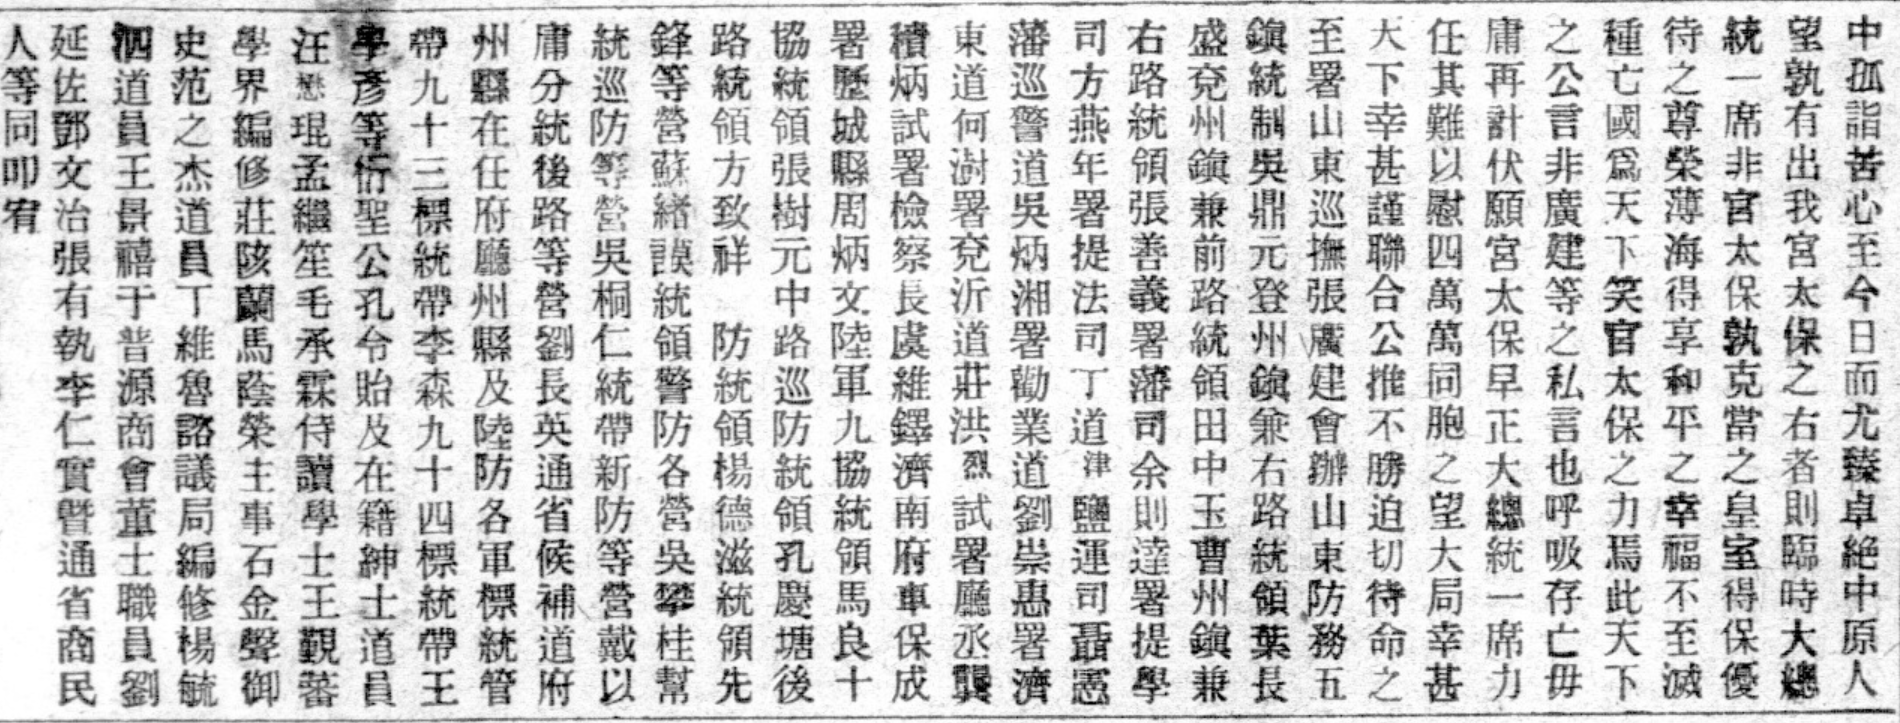 中孤詣苦心至今日而尤臻卓絶中原人
望孰有出我宮太保之右者則臨時大總
統一席非官太保孰克當之皇室得保優
待之尊榮薄海得享和平之幸福不至滅
種亡國爲天下笑官太保之力焉此天下
之公言非廣建等之私言也呼吸存亡毋
庸再計伏願宮太保早正大總統一席力
任其難以慰四萬萬同胞之望大局幸甚
大下幸甚謹聯合公推不勝迫切待命之
至署山東巡撫張廣建會辦山東防務五
鎭統制吳鼎元登州鎭兼右路統領葉長
盛兗州鎭兼前路統領田中玉曹州鎭兼
右路統領張善義署藩司余則達署提學
司方燕年署提法司丁道津鹽運司聶憲
藩巡警道吳炳湘署勸業道劉崇惠署濟
東道何澍署兗沂道莊洪烈試署廳丞龔
積炳試署檢察長虞維鐸濟南府車保成
署歷城縣周炳文陸軍九協統領馬良十
協統領張樹元中路巡防統領孔慶塘後
路統領方致祥 防統領楊德滋統領先
鋒等營蘇緒謨統領警防各營吳攀桂幫
統巡防等營吳桐仁統帶新防等營戴以
庸分統後路等營劉長英通省候補道府
州縣在任府廳州縣及陸防各軍標統管
帶九十三標統帶李森九十四標統帶王
學彥等衍聖公孔令貽及在籍紳士道員
汪懋琨孟繼笙毛承霖侍讀學士王覲蕃
學界編修莊陔蘭馬蔭榮主事石金聲御
史范之杰道員丁維魯諮議局編修楊毓
泗道員王景禧于普源商會董士職員劉
延佐鄧文治張有執李仁實曁通省商民
人等同叩宥